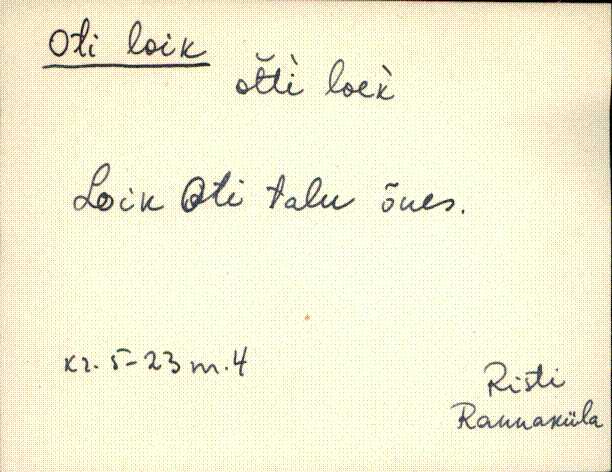 Oti loik
ŏtti̇̀ loek̀
Loik Oti talu õues.
kr. 5-23 m. 4
Risti
Rannaküla